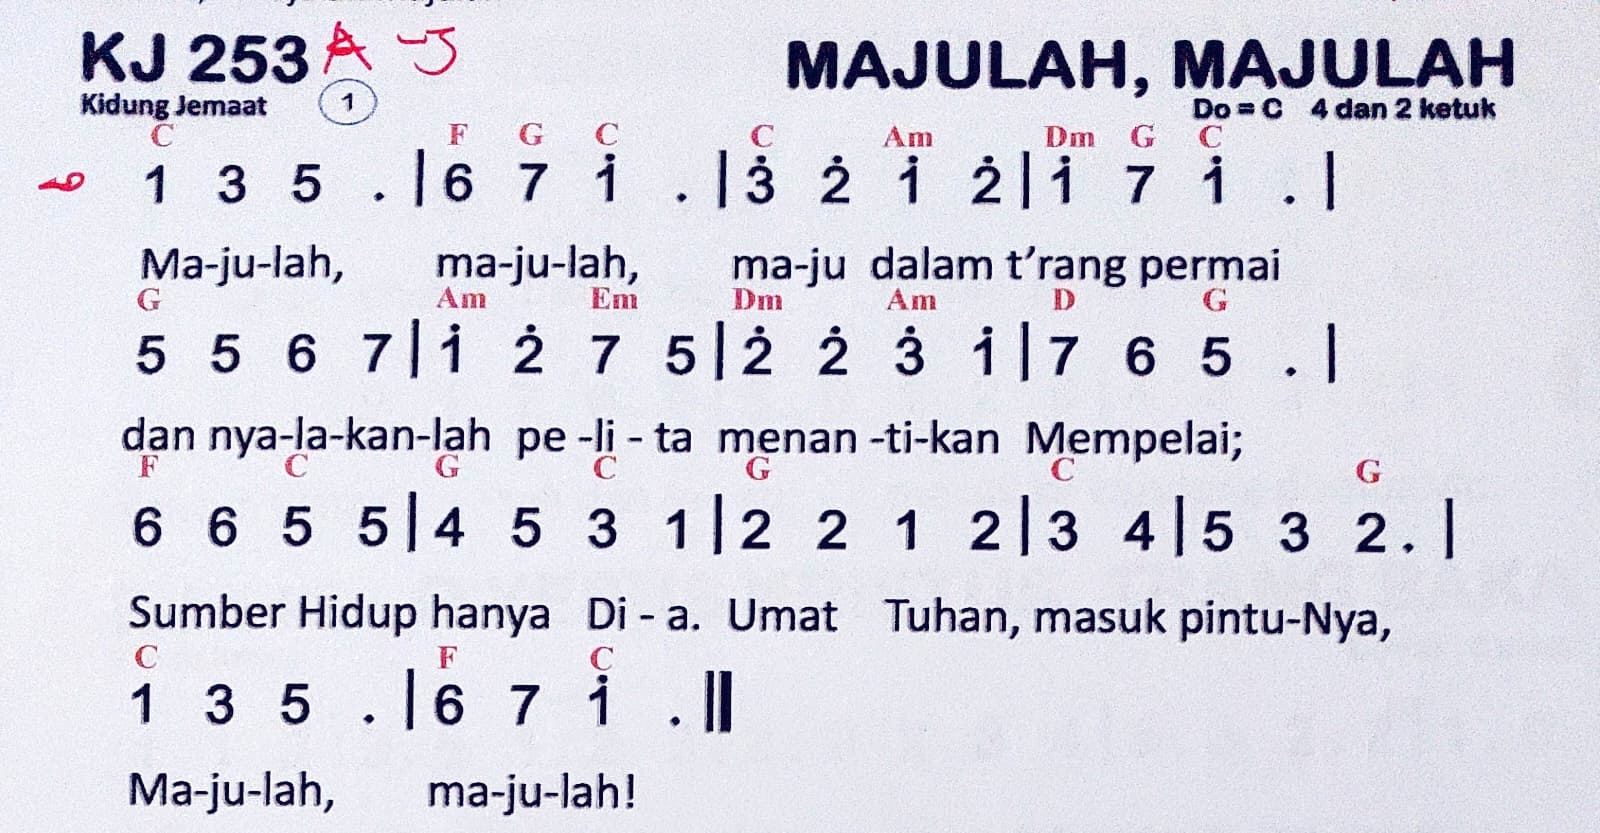 KJ 253 A - J MAJULAH, MAJULAH
Kidung Jemaat 1 Do = C 4 dan 2 ketuk
C F G C C Am Dm G C
1 3 5 . | 6 7 1̇ . | 3̇ 2̇ 1̇ 2̇ | 1̇ 7 1̇ . |
Ma-ju-lah, ma-ju-lah, ma-ju dalam t’rang permai
G Am Em Dm Am D G
5 5 6 7 | 1̇ 2̇ 7 5 | 2̇ 2̇ 3̇ 1̇ | 7 6 5 . |
dan nya-la-kan-lah pe -li - ta menan -ti-kan Mempelai;
F C G C G C G
6 6 5 5 | 4 5 3 1 | 2 2 1 2 | 3 4 | 5 3 2 . |
Sumber Hidup hanya Di - a. Umat Tuhan, masuk pintu-Nya,
C F C
1 3 5 . | 6 7 1̇ . ||
Ma-ju-lah, ma-ju-lah!